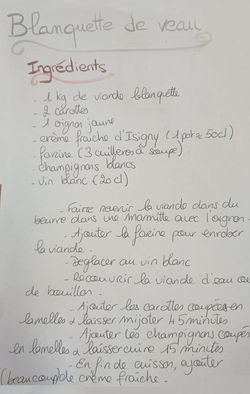 Blanquette de veau
Ingrédients
- 1 kg de viande blanquette
- 2 carottes
- 1 oignon jaune
- crème fraiche d'Isigny (1 pot = 50cl)
- farine (3 cuillères à soupe)
- champignons blancs
- vin blanc (20cl)
- Faire revenir la viande dans du
beurre dans une marmitte avec l'oignon.
- Ajouter la farine pour enrober
la viande.
- Déglacer au vin blanc
- Recouvrir la viande d'eau ou
de bouillon.
- Ajouter les carottes coupées en
lamelles & laisser mijoter 45 minutes
- Ajouter les champignons coupés
en lamelles & laisser cuire 15 minutes.
- En fin de cuisson, ajouter
(beaucoup) de crème fraîche.